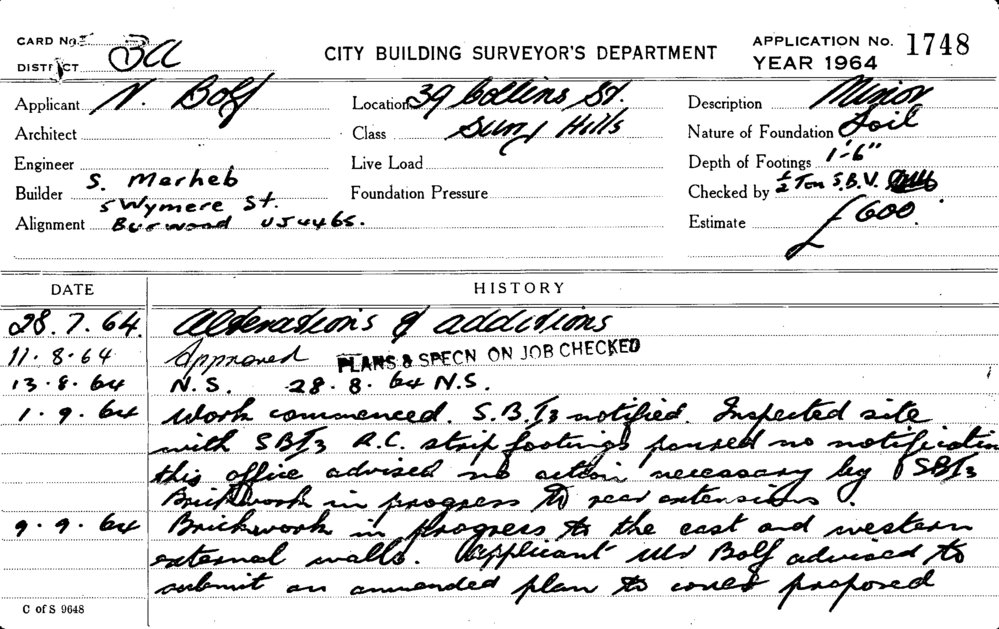 CARD No.
DISTRICT BCC
CITY BUILDING SURVEYOR'S DEPARTMENT
APPLICATION No. 1748
YEAR 1964
Applicant N. Bolf
Location 39 Collins St.
Description Minor
Architect
Class Surry Hills
Nature of Foundation Soil
Engineer
Live Load
Depth of Footings 1'-6"
Builder S. Merheb
Foundation Pressure
Checked by ½ Ton S.B.V.
5 Wymere St.
Alignment Burwood UJ4465.
Estimate £600.
DATE HISTORY
28.7.64. Alterations & additions
11.8.64 Approved PLANS & SPECN ON JOB CHECKED
13.8.64 N.S. 28.8.64 N.S.
1.9.64 Work commenced. S.B.I3 notified. Inspected site
with SBI3 R.C. strip footings poured no notification
this office advised no action necessary by SBI3
Brickwork in progress to rear extensions.
9.9.64 Brickwork in progress to the east and western
external walls. Applicant Mr Bolf advised to
submit an ammended plan to cover proposed
C of S 9648